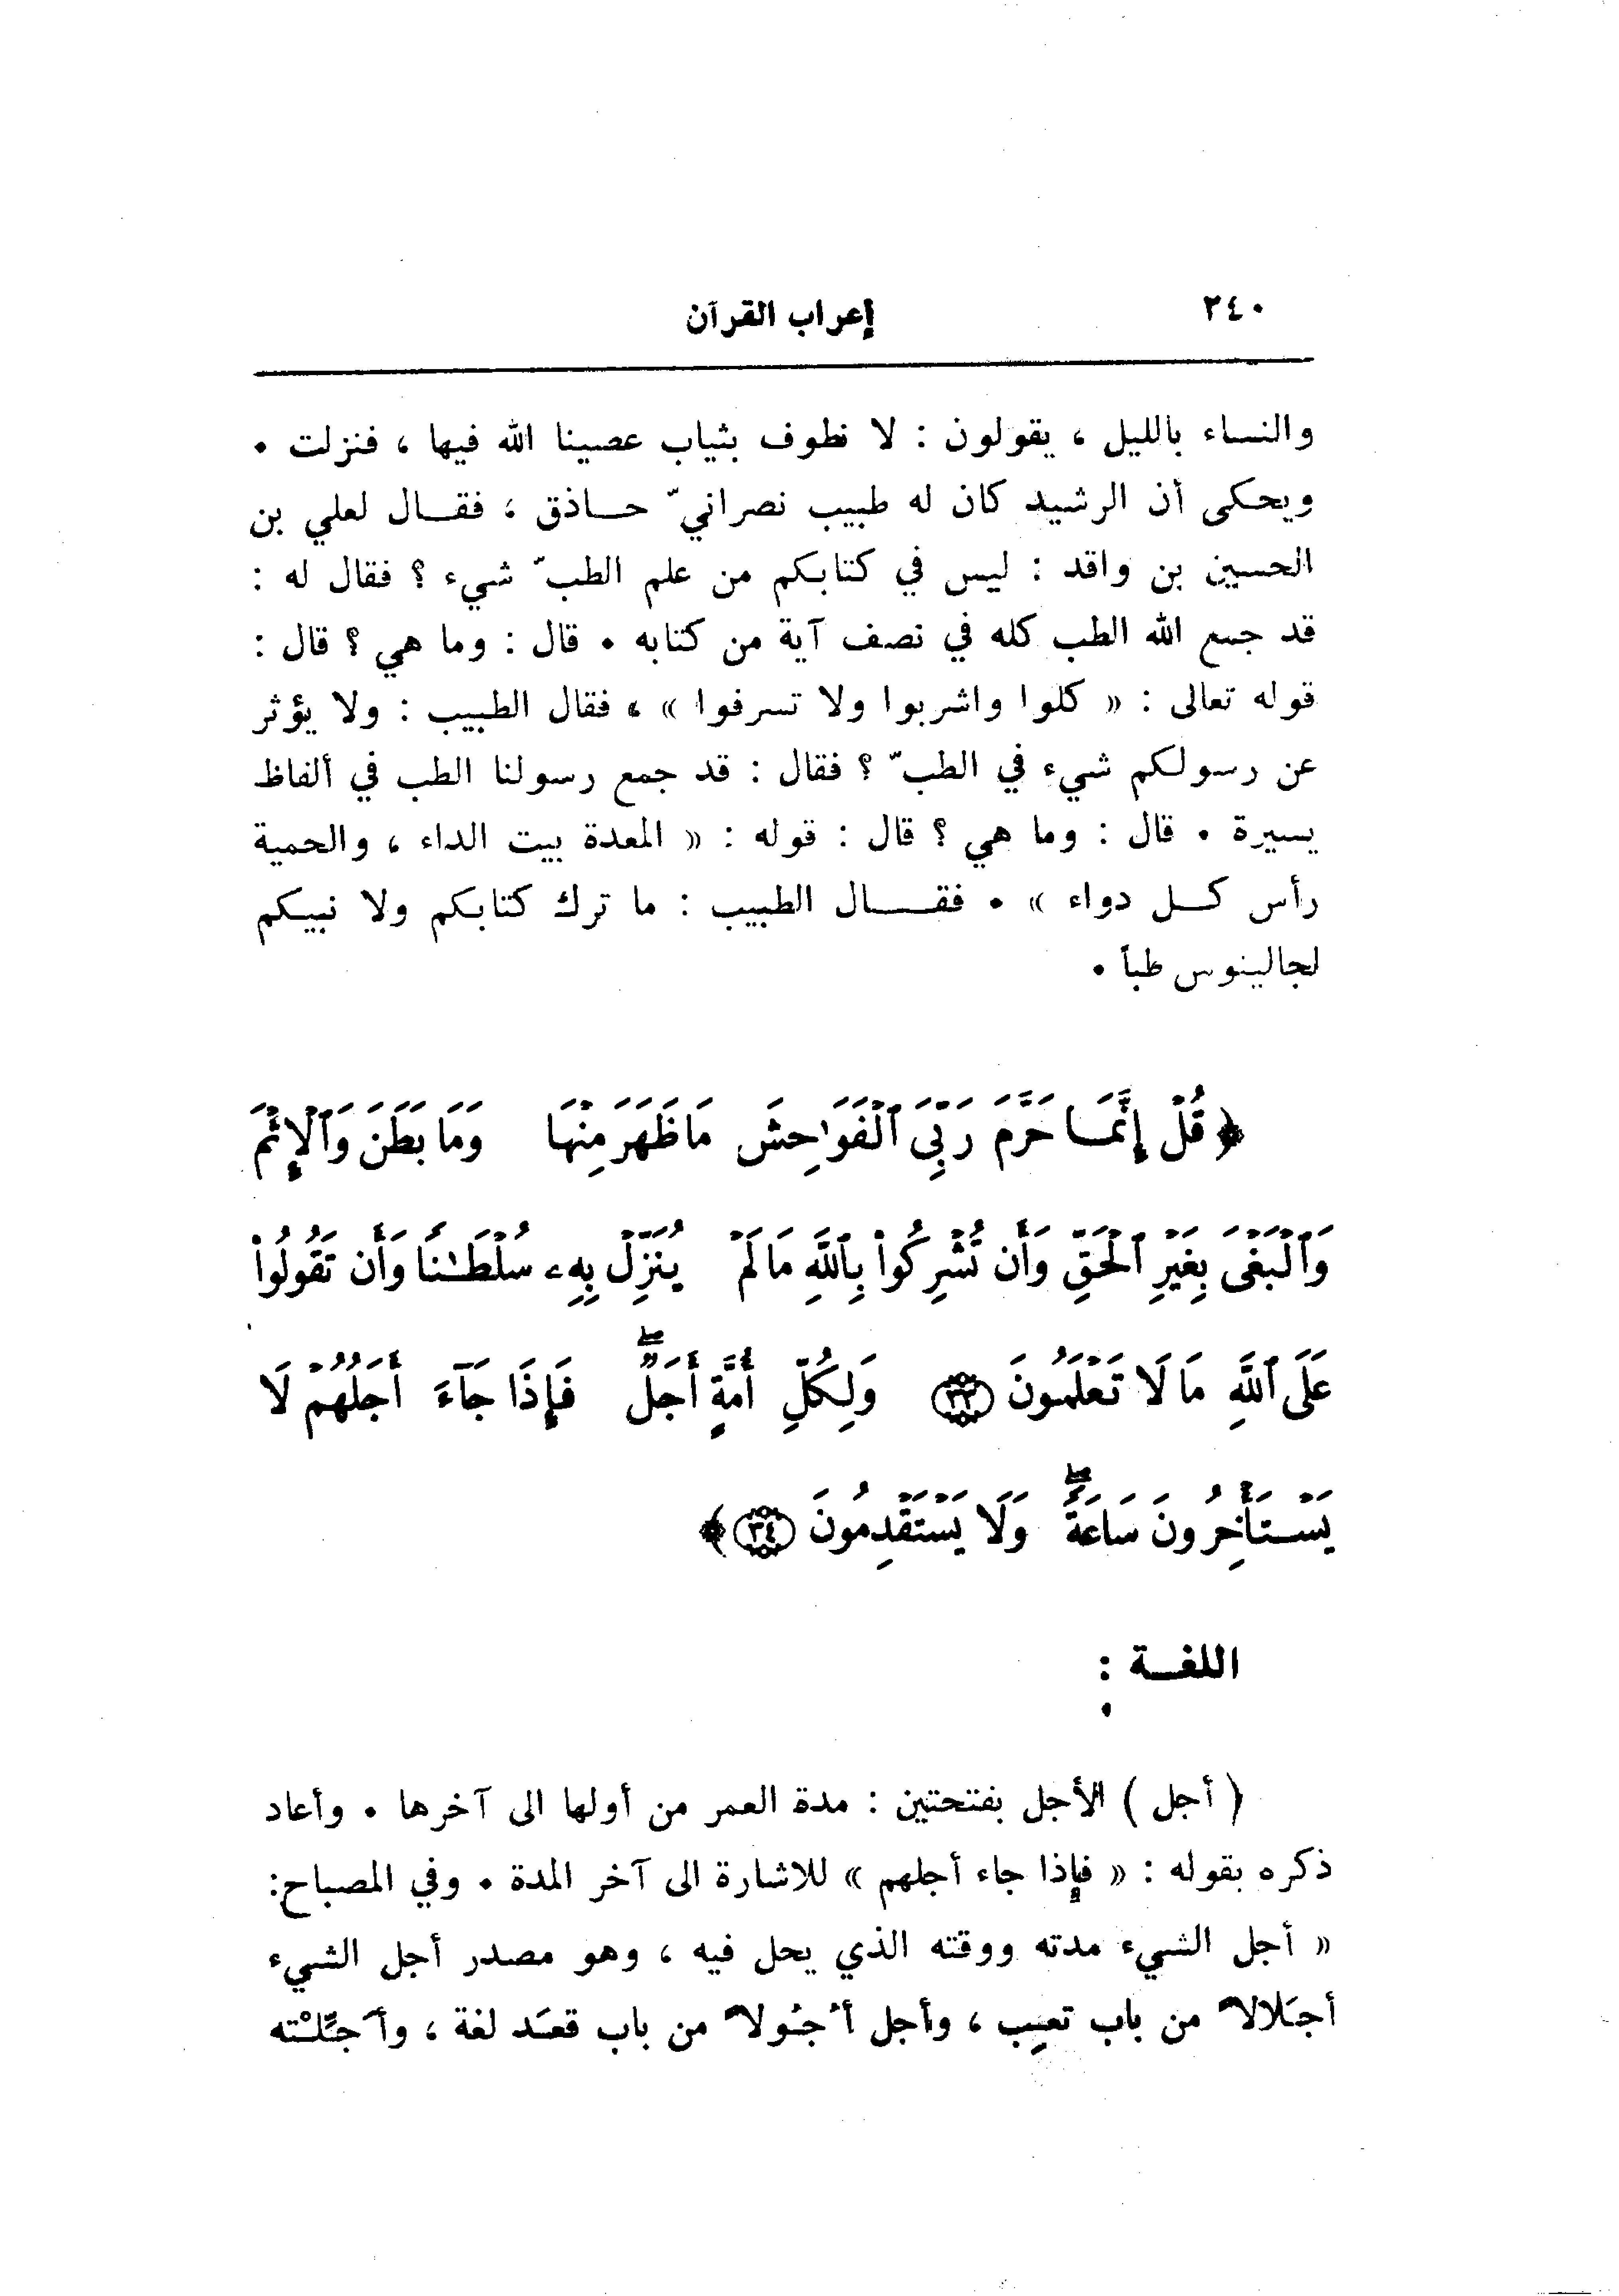 ٣٤٠ إعراب القرآن
والنساء بالليل ، يقولون : لا نطوف بثياب عصينا الله فيها ، فنزلت ٠
ويحكى أن الرشيد كان له طبيب نصرانيّ حــاذق ، فقــال لعلي بن
الحسين بن واقد : ليس في كتابكم من علم الطبّ شيء ؟ فقال له :
قد جمع الله الطب كله في نصف آية من كتابه ٠ قال : وما هي ؟ قال :
قوله تعالى : « كلوا واشربوا ولا تسرفوا » ، فقال الطبيب : ولا يؤثر
عن رسولكم شيء في الطبّ ؟ فقال : قد جمع رسولنا الطب في ألفاظ
يسيرة ٠ قال : وما هي ؟ قال : قوله : « المعدة بيت الداء ، والحمية
رأس كــل دواء » ٠ فقــــال الطبيب : ما ترك كتابكم ولا نبيكم
لجالينوس طباً ٠
﴿ قُلْ إِنَّمَا حَرَّمَ رَبِّىَ ٱلْفَوَٰحِشَ مَا ظَهَرَ مِنْهَا وَمَا بَطَنَ وَٱلْإِثْمَ
وَٱلْبَغْىَ بِغَيْرِ ٱلْحَقِّ وَأَن تُشْرِكُوا۟ بِٱللَّهِ مَا لَمْ يُنَزِّلْ بِهِۦ سُلْطَـٰنًا وَأَن تَقُولُوا۟
عَلَى ٱللَّهِ مَا لَا تَعْلَمُونَ ٣٣ وَلِكُلِّ أُمَّةٍ أَجَلٌۖ فَإِذَا جَآءَ أَجَلُهُمْ لَا
يَسْتَأْخِرُونَ سَاعَةًۖ وَلَا يَسْتَقْدِمُونَ ٣٤ ﴾
اللغــة :
( أجل ) الأجل بفتحتين : مدة العمر من أولها الى آخرها ٠ وأعاد
ذكره بقوله : « فإذا جاء أجلهم » للاشارة الى آخر المدة ٠ وفي المصباح:
« أجل الشيء مدته ووقته الذي يحل فيه ، وهو مصدر أجل الشيء
أجَلالاً من باب تعِب ، وأجل أُجُولاً من باب قعَد لغة ، وأَجَّلْته